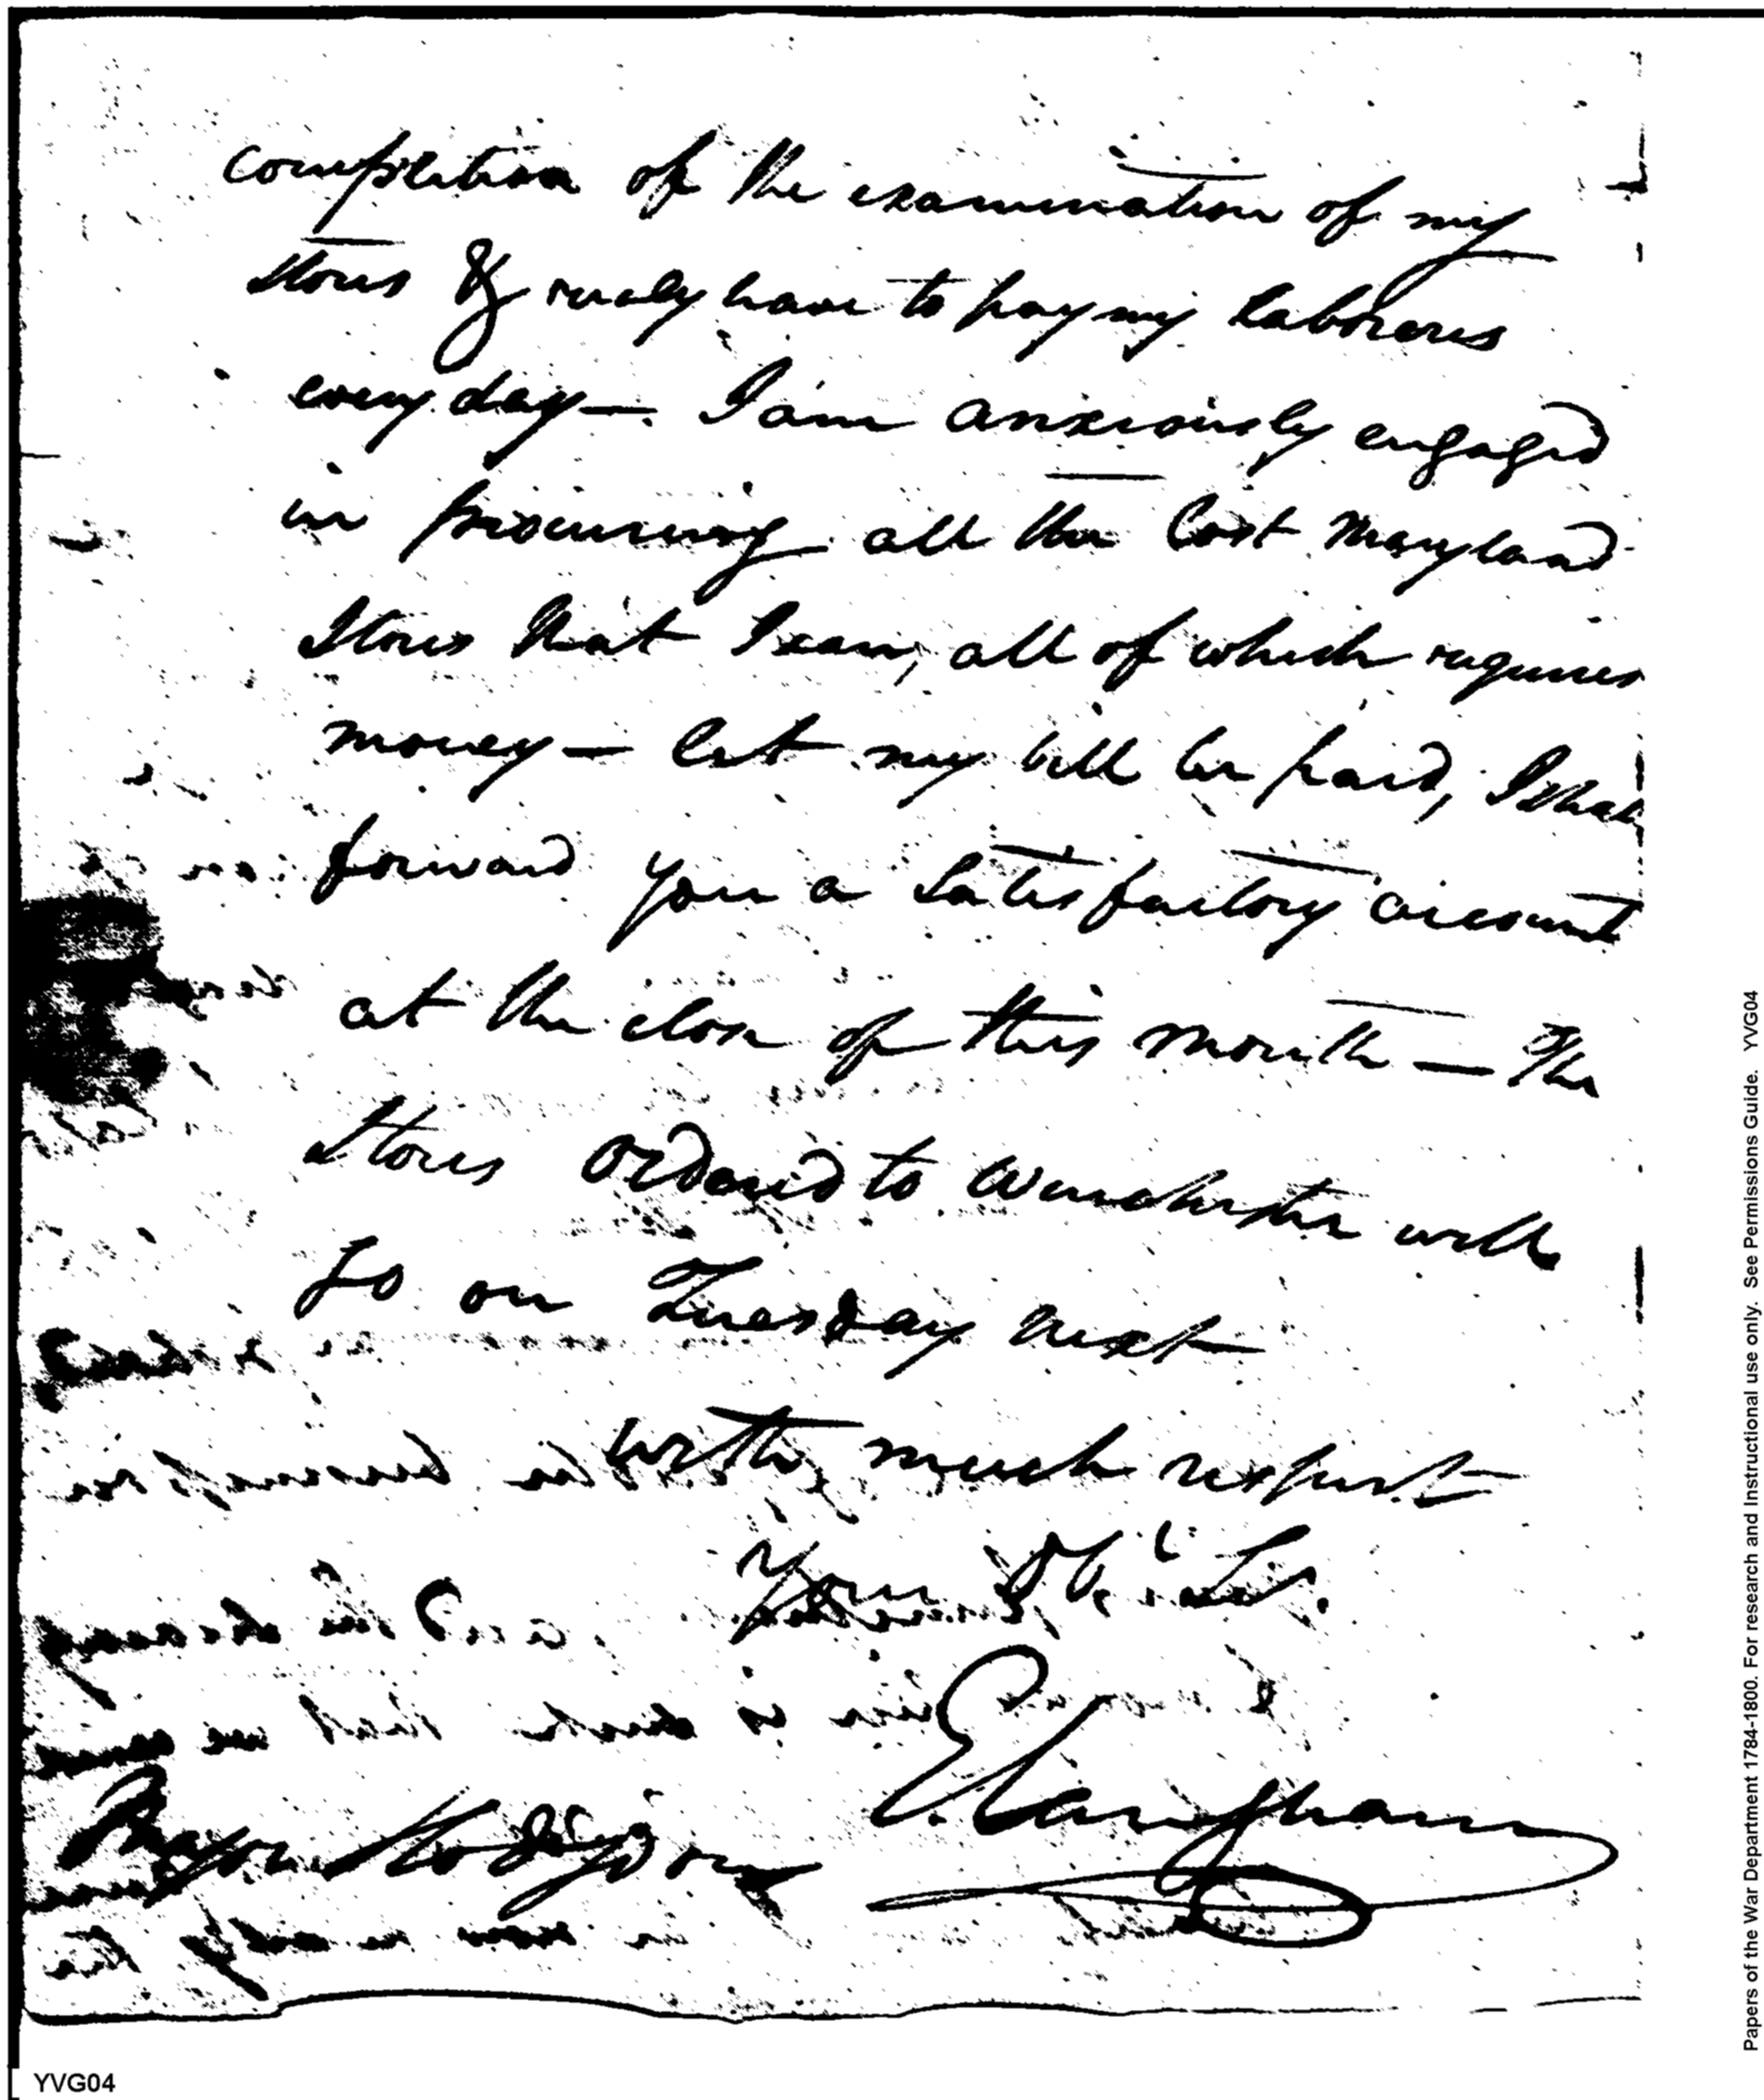 completion of the examination of my
Stores & really have to pay my laborers
every day — I am anxiously engaged
in procuring all the lost Maryland
Stores that I can, all of which requires
money — let my bill be paid, I shall
forward you a Satisfactory account
at the close of this month — The
Stores ordered to Winchester will
go on Tuesday next
with much respect
Your Ob. St.
E Langham
Major Hodgdon
YVG04
Papers of the War Department 1784-1800. For research and Instructional use only. See Permissions Guide. YVG04